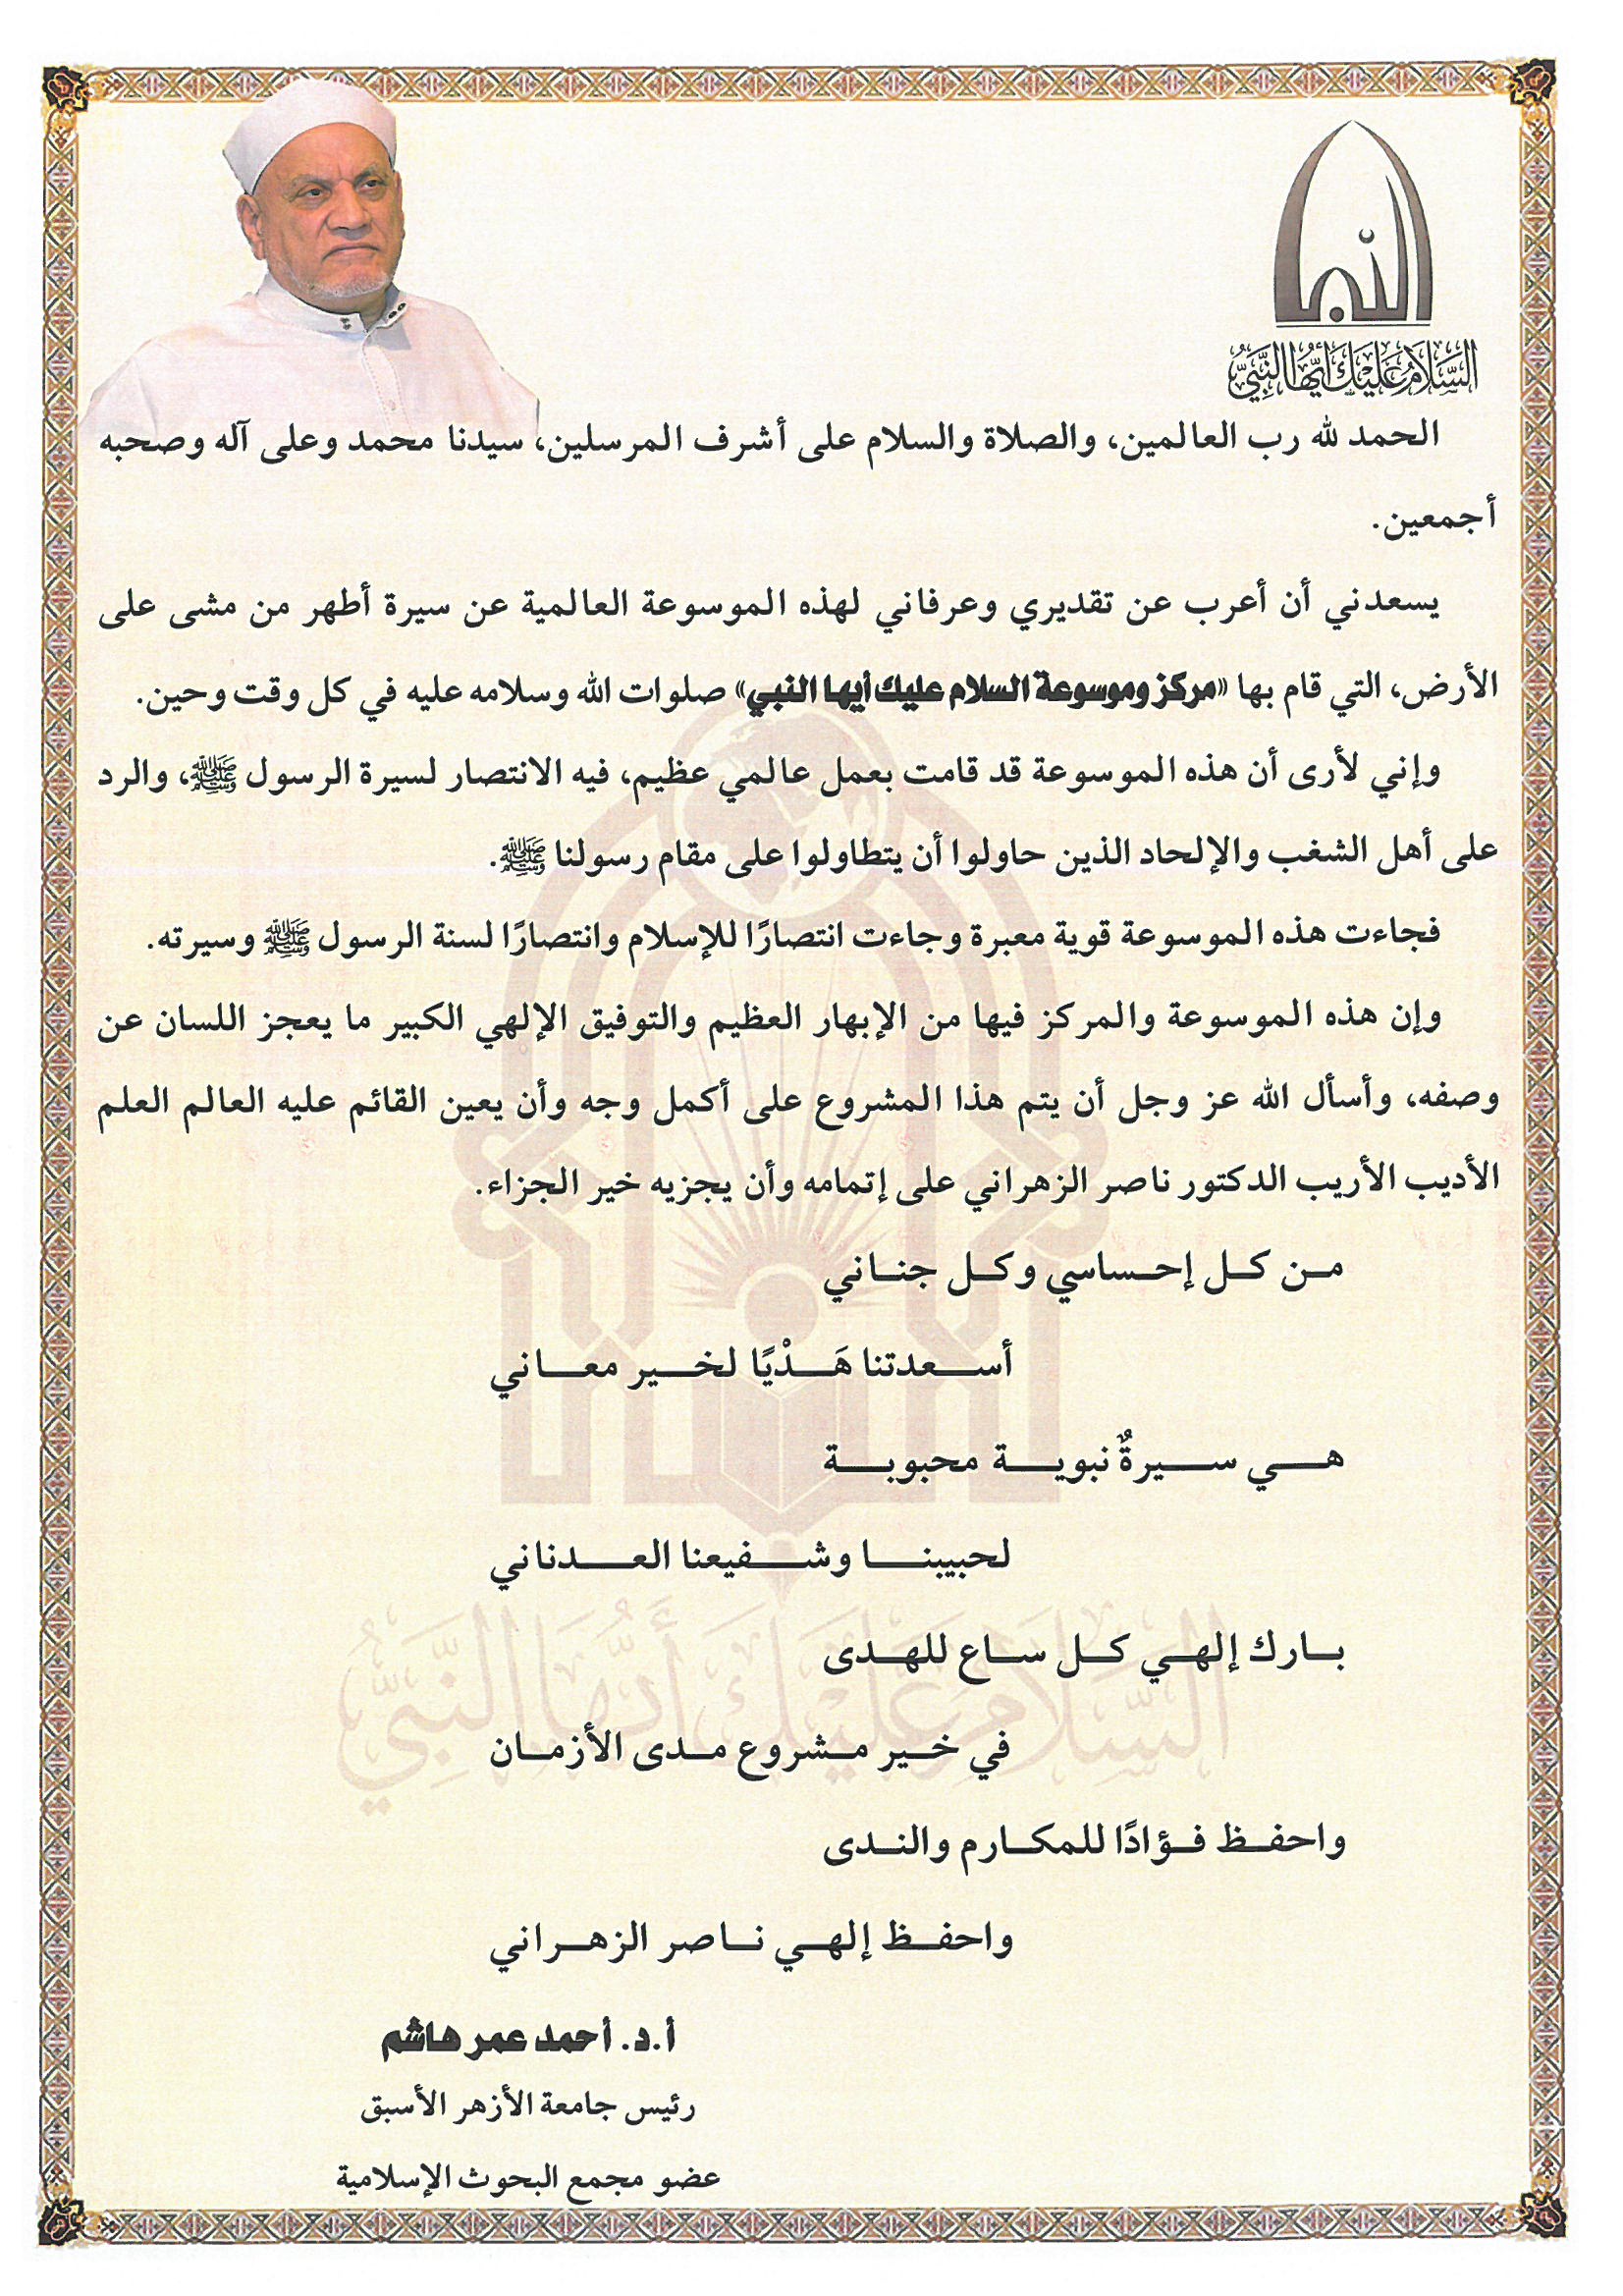 السَّلَامُ عَلَيْكَ أَيُّهَا النَّبِيُّ
الحمد لله رب العالمين، والصلاة والسلام على أشرف المرسلين، سيدنا محمد وعلى آله وصحبه
أجمعين.
يسعدني أن أعرب عن تقديري وعرفاني لهذه الموسوعة العالمية عن سيرة أطهر من مشى على
الأرض، التي قام بها «مركز وموسوعة السلام عليك أيها النبي» صلوات الله وسلامه عليه في كل وقت وحين.
وإني لأرى أن هذه الموسوعة قد قامت بعمل عالمي عظيم، فيه الانتصار لسيرة الرسول ﷺ، والرد
على أهل الشغب والإلحاد الذين حاولوا أن يتطاولوا على مقام رسولنا ﷺ.
فجاءت هذه الموسوعة قوية معبرة وجاءت انتصارًا للإسلام وانتصارًا لسنة الرسول ﷺ وسيرته.
وإن هذه الموسوعة والمركز فيها من الإبهار العظيم والتوفيق الإلهي الكبير ما يعجز اللسان عن
وصفه، وأسأل الله عز وجل أن يتم هذا المشروع على أكمل وجه وأن يعين القائم عليه العالم العلم
الأديب الأريب الدكتور ناصر الزهراني على إتمامه وأن يجزيه خير الجزاء.
من كل إحساسي وكل جناني
أسعدتنا هَدْيًا لخير معاني
هي سيرةٌ نبوية محبوبة
لحبيبنا وشفيعنا العدناني
بارك إلهي كل ساع للهدى
السَّلَامُ عَلَيْكَ أَيُّهَا النَّبِيُّ
في خير مشروع مدى الأزمان
واحفظ فؤادًا للمكارم والندى
واحفظ إلهي ناصر الزهراني
أ.د. أحمد عمر هاشم
رئيس جامعة الأزهر الأسبق
عضو مجمع البحوث الإسلامية